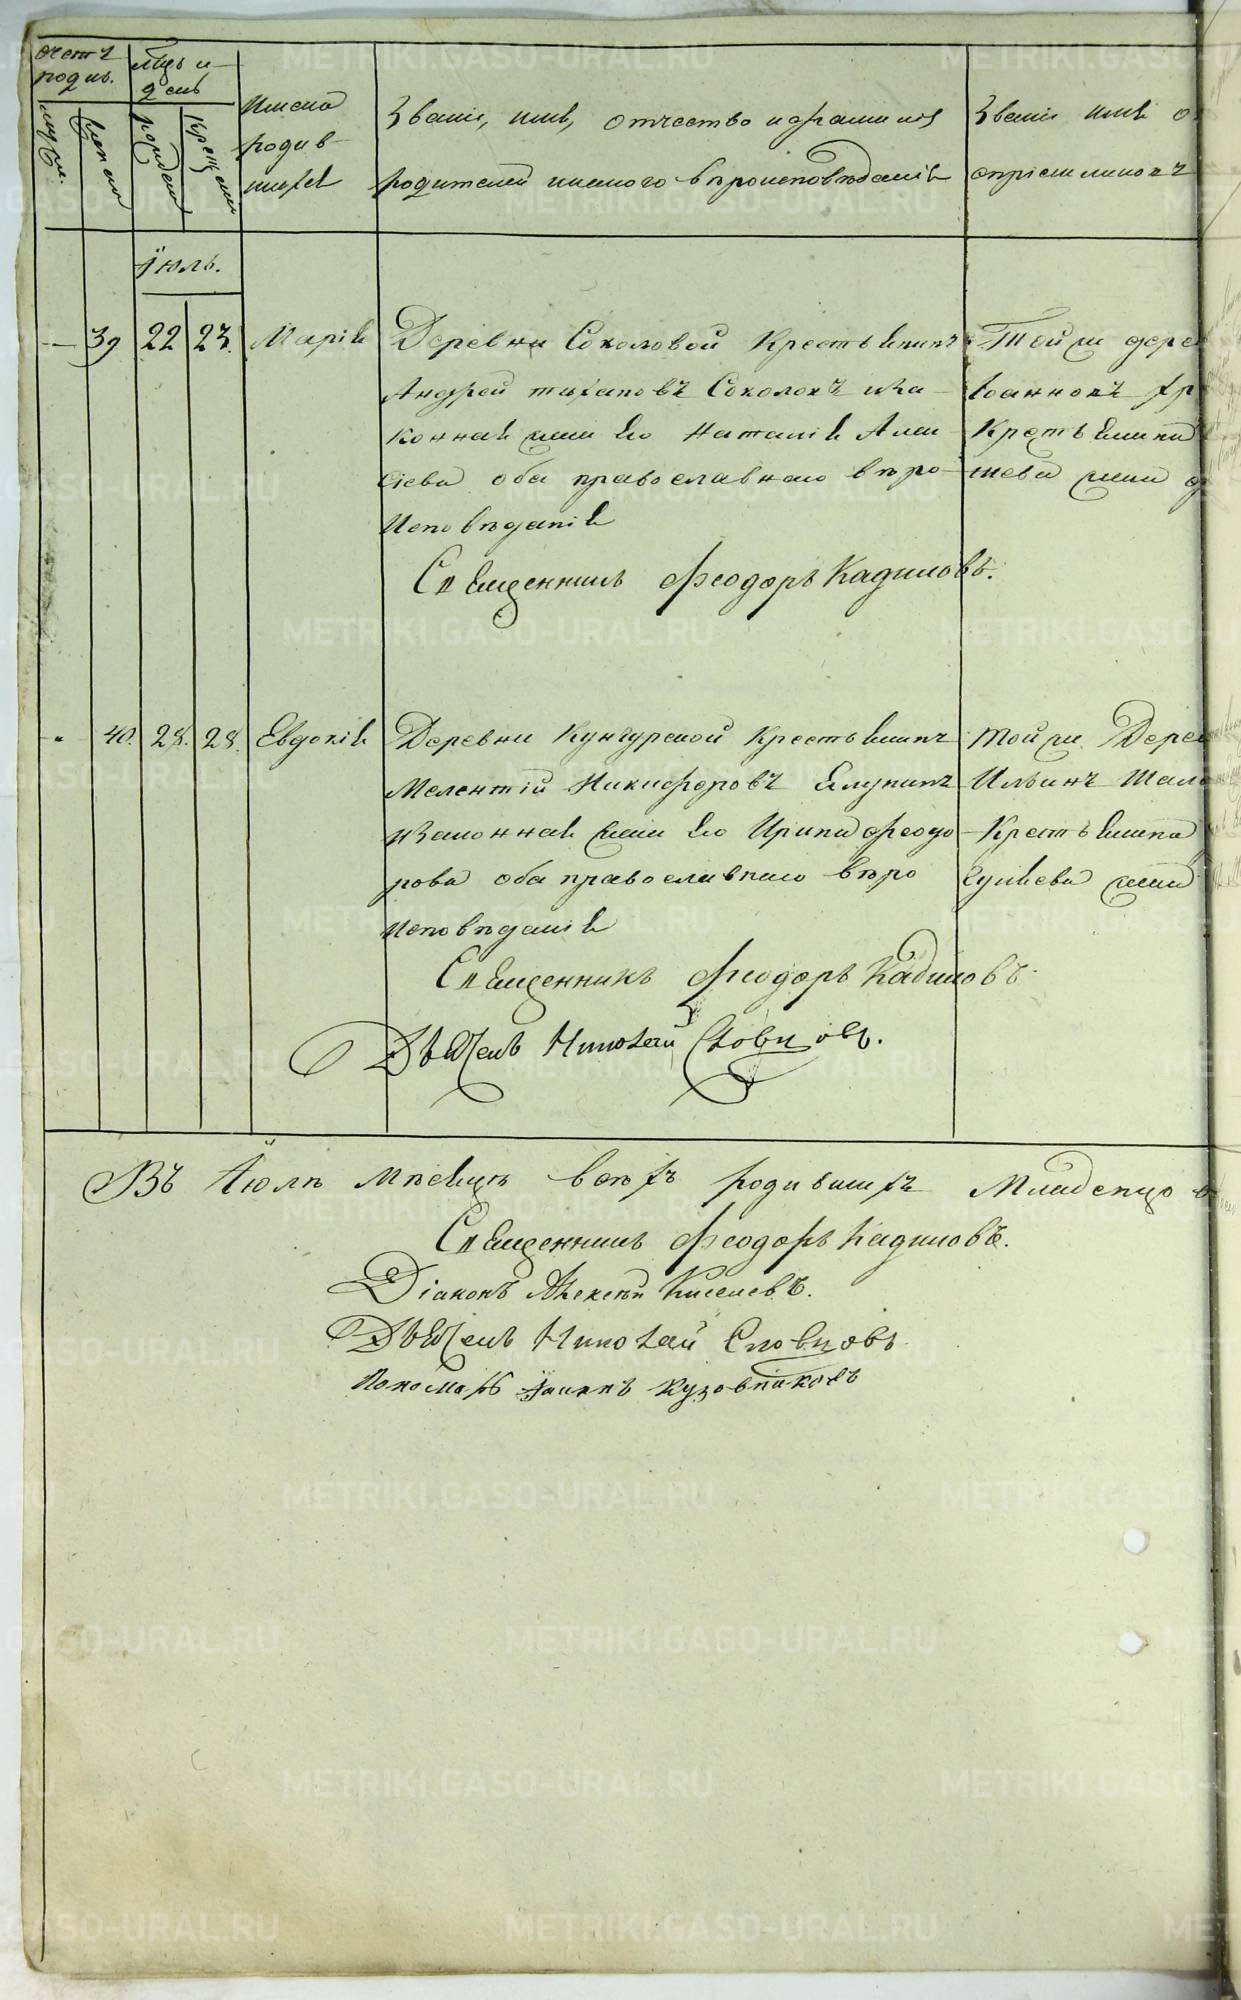 Счетъ родив.
мужес.
женск.
Мцъ и день
рожден
крещени
Имена родившихся
Званіе, имя, отчество и фамилия
родителей и какого вѣроисповѣданія
Званіе имя
воспріемниковъ
Іюль.
— 39 22 23. Марія
Деревни Соколовой Крестьянинъ
Андрей Потаповъ Соколовъ и за-
конная жена его Наталія Алек
сіева оба православнаго вѣро-
исповѣданія
Священникъ Феодоръ Кадиловъ.
Той же дере
Іоанновъ
Крестьянина
жена
" 40. 28. 28. Евдокія
Деревни Кунгурской Крестьянинъ
Мелентій Никифоровъ Елунинъ
и законная жена его Ирина Феодо
рова оба православнаго вѣро
исповѣданія
Священникъ Феодоръ Кадиловъ.
Дьячекъ Николай Словцовъ.
Той же Дере
Ильинъ
Крестьянина
жена
Въ Іюлѣ мѣсяцѣ всѣхъ родившихъ Младенцо
Священникъ Феодоръ Кадиловъ.
Діаконъ Алексѣй Киселевъ.
Дьячекъ Николай Словцовъ
Пономарь Іоаннъ Кузовниковъ
METRIKI.GASO-URAL.RU